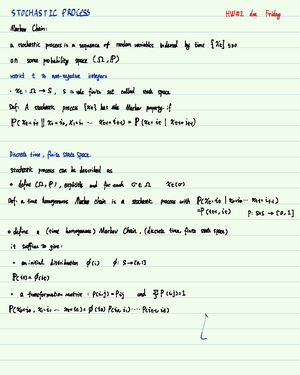 STOCHASTIC PROCESS
HW#1 due Friday
Markov Chain:
a stochastic process is a sequence of random variables indexed by time {Xt} t≥0
on some probability space (Ω, P)
restrict t to non-negative integers
• Xt: Ω → S, S is a finite set called state space
Def: A stochastic process {Xt} has the Markov property if
Discrete time, finite state space
stochastic process can be described as
• define (Ω, P), explicitly and for each σ∈Ω Xt(σ)
Def: a time homogeneous Markov chain is a stochastic process with
P: S×S → [0,1]
• define a (time homogeneous) Markov Chain, (discrete time, finite state space)
it suffices to give:
• an initial distribution φ(i) φ: S→[0,1]
P(X0=i)=φ(i)
• a transformation matrix: P(i,j)=Pij and